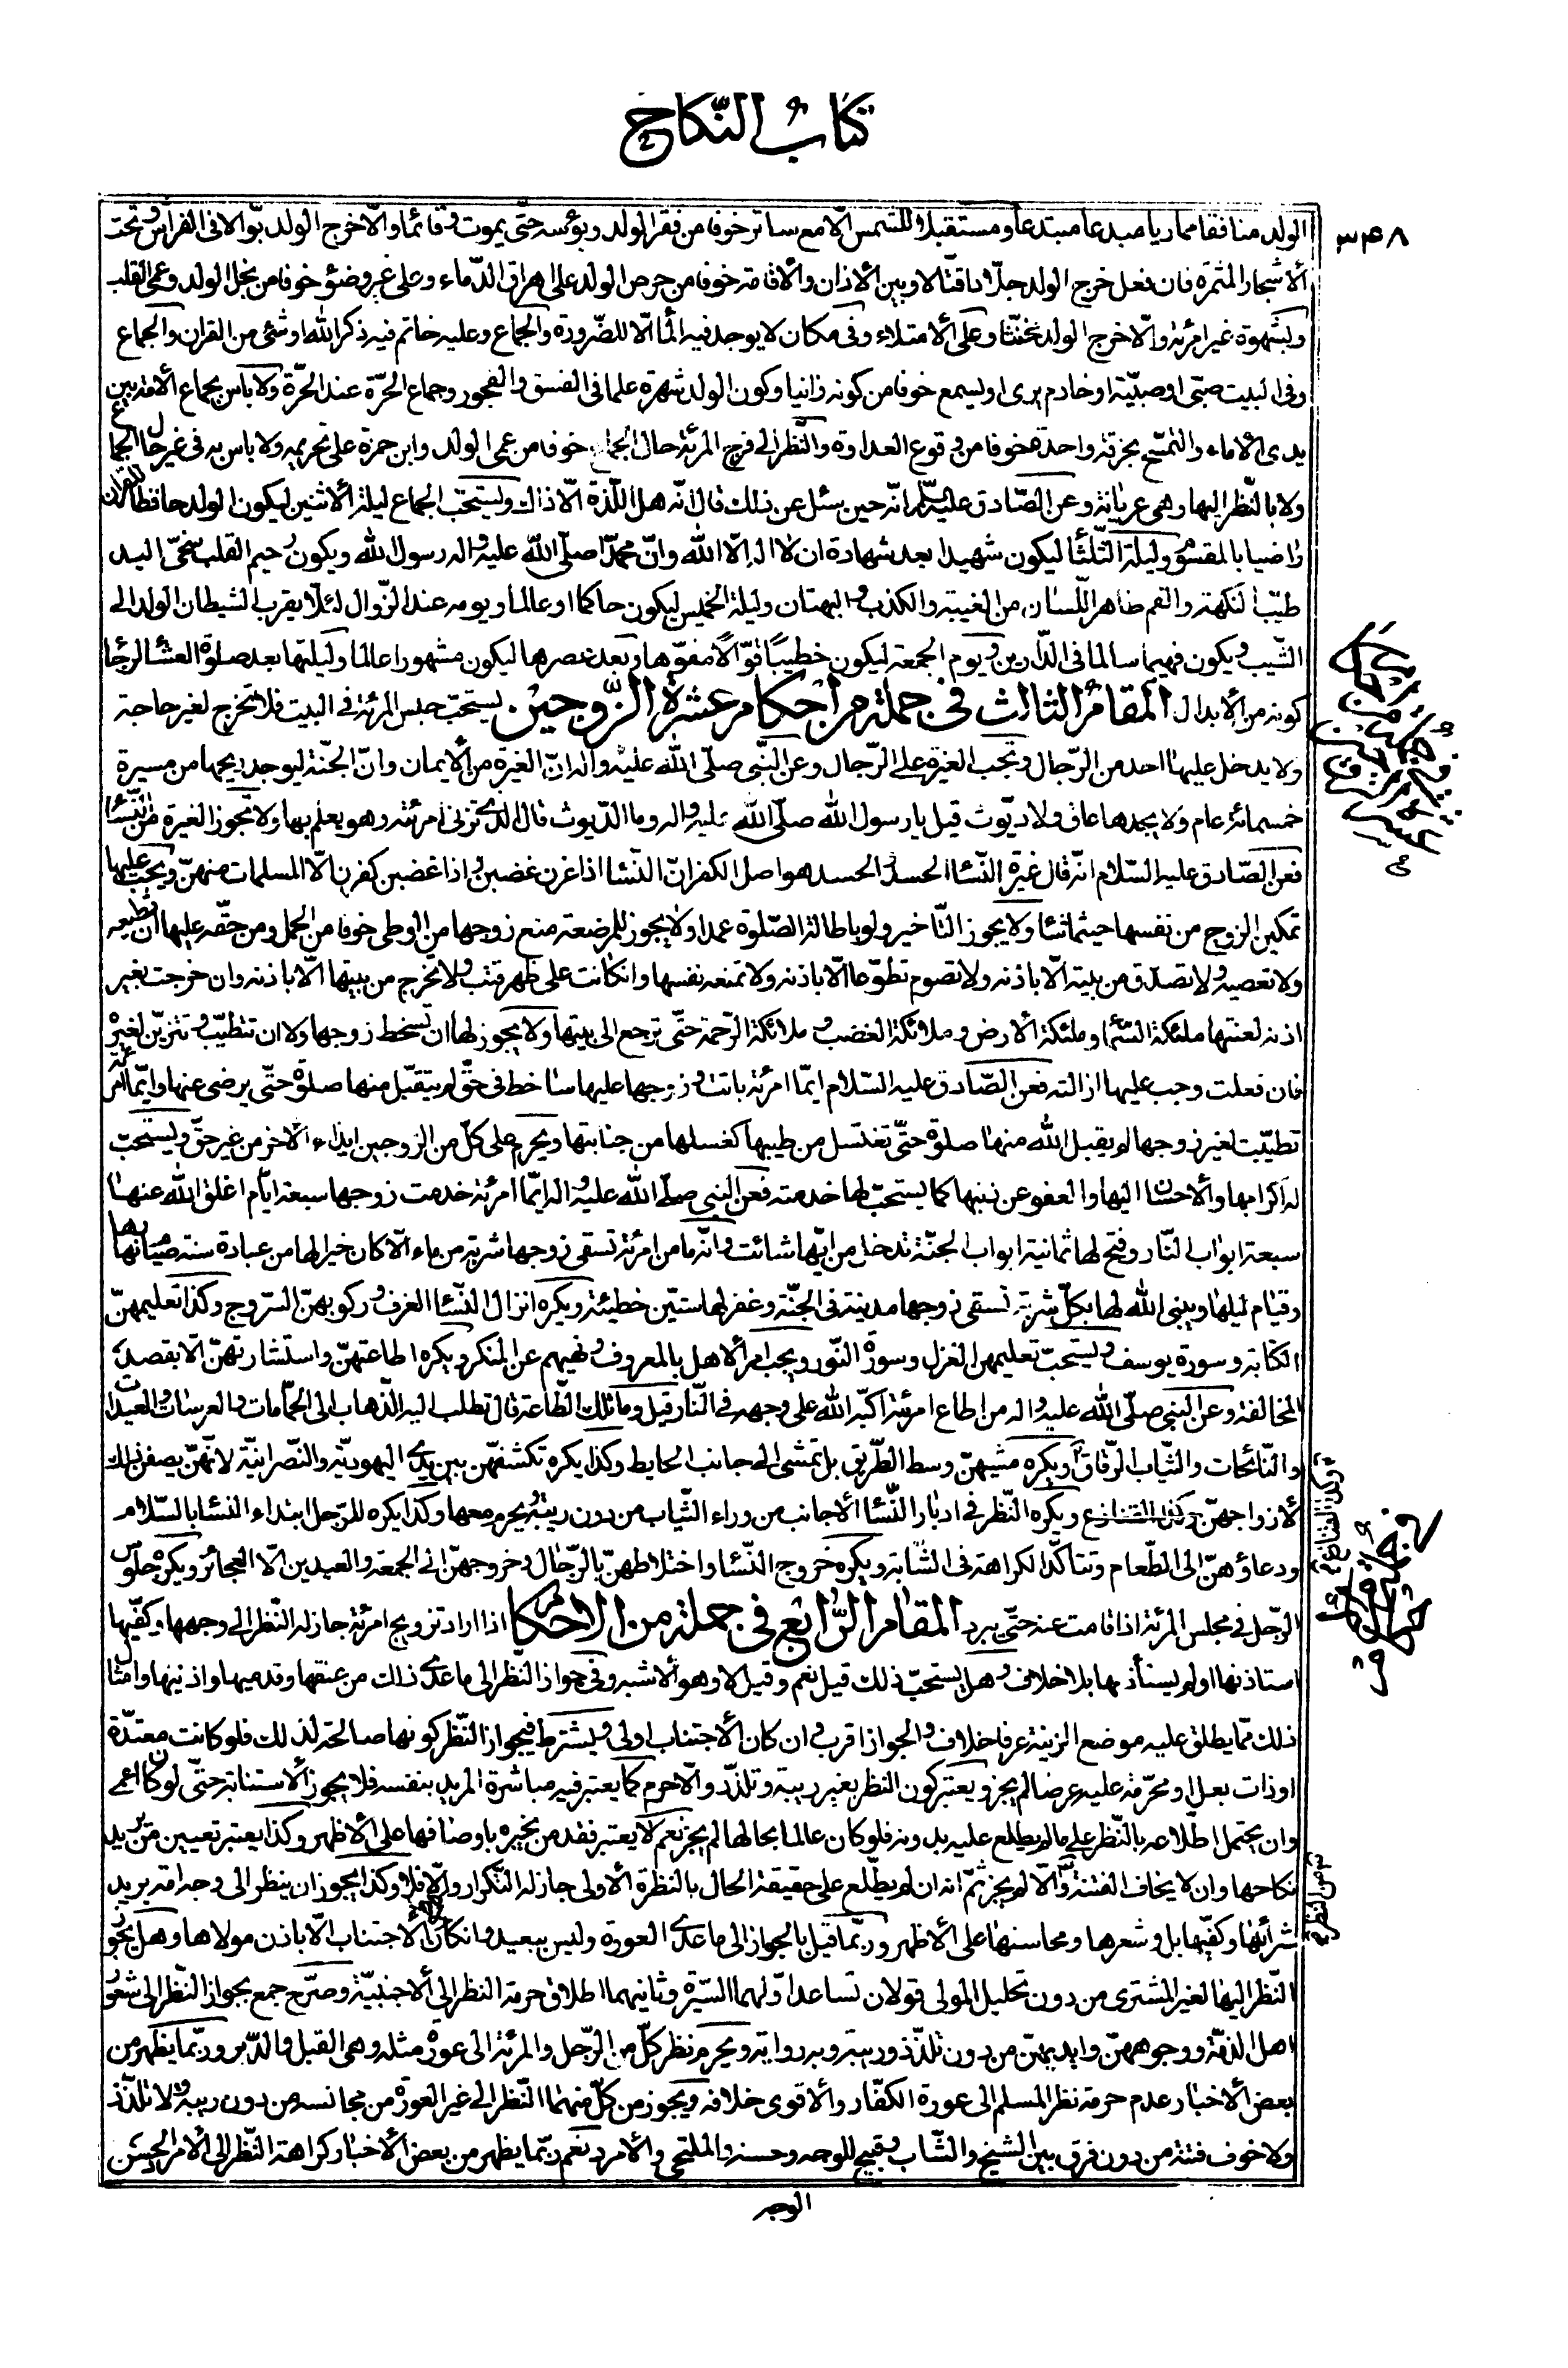 كتاب النّكاح
٣۴٨
الولد منافقا مماريا مبدعا مبتدعا ومستقبلا للشمس الّا مع ساتر خوفا من فقر الولد وبؤسه حتّى يموت وقائما والّا خرج الولد بوّالا فى الفراش وتحت
الأشجار المثمرة فان فعل خرج الولد جلّادا قتّالا وبين الأذان والأقامة خوفا من حرص الولد على اهراق الدّماء وعلى غير وضوء خوفا من بخل الولد وعمى القلب
وبشهوة غير امرئة والّا خرج الولد مخنّثا وعلى الأمتلاء وفى مكان لا يوجد فيه الماء الّا للضّرورة والجماع وعليه خاتم فيه ذكر الله او شئ من القران والجماع
وفى البيت صبىّ او صبيّة او خادم يرى او يسمع خوفا من كونه زانيا وكون الولد شهرة علما فى الفسق والفجور وجماع الحرّة عند الحرّة ولا باس بجماع الأمة بين
يدى الأماء والتمسّح بخرقة واحدة خوفا من وقوع العداوة والنّظر الى فرج المرئة حال الجماع خوفا من عمى الولد وابن حمزة على تحريمه ولا باس به فى غير حال الجماع
ولا بالنّظر اليها وهى عريانة وعن الصّادق عليه السّلم انّه حين سئل عن ذلك قال انّه هل اللّذة الّا ذاك ويستحّب الجماع ليلة الأثنين ليكون الولد حافظا للقران
راضيا بالمقسوم وليلة الثّلثا ليكون شهيدا بعد شهادة ان لا اله الّا الله وانّ محمّدا صلّى الله عليه واله رسول الله ويكون رحيم القلب سخىّ اليد
طيّب النكهة والفم طاهر اللّسان من الغيبة والكذب والبهتان وليلة الخميس ليكون حاكما او عالما ويومه عند الزّوال لئلّا يقرب الشيطان الولد الى
الشّيب ويكون فهيما سالما فى الدّارين ويوم الجمعة ليكون خطيبًا قوّالًا مفوّها وبعد عصرها ليكون مشهورا عالما وليلتها بعد صلوة العشا لرجا
كونه من الأبدال المقام الثالث فى جملة من احكام عشرة الزّوجين يستحبّ حبس المرئة فى البيت فلا تخرج لغير حاجة
ولا يدخل عليها احد من الرّجال وتجب الغيرة على الرّجال وعن النّبى صلّى الله عليه واله انّ الغيرة من الأيمان وانّ الجنّة ليوجد ريحها من مسيرة
خمسمائة عام ولا يجدها عاق ولا ديّوث قيل يا رسول الله صلّى الله عليه واله وما الدّيوث قال الّذى تزنى امرئته وهو يعلم بها ولا تجوز الغيرة من النّسا
فعن الصّادق عليه السّلام انّه قال غيرة النّسا الحسد والحسد هو اصل الكفر انّ النّسا اذا غرن غضبن واذا غضبن كفرن الّا المسلمات منهنّ ويجب عليها
تمكين الزوج من نفسها حيثما شا ولا يجوز التّاخير ولو باطالة الصّلوة عمدا ولا يجوز للمرضعة منع زوجها من الوطى خوفا من الحمل ومن حقّه عليها ان تطيعه
ولا تعصيه ولا تصدّق من بيته الّا باذنه ولا تصوم تطوّعا الّا باذنه ولا تمنعه نفسها وان كانت على ظهر قتب ولا تخرج من بيتها الّا باذنه وان خرجت بغير
اذنه لعنتها ملئكة السّما وملئكة الأرض وملائكة الغضب وملائكة الرّحمة حتّى ترجع الى بيتها ولا يجوز لها ان تسخط زوجها ولا ان تتطيّب وتتزيّن لغيره
فان فعلت وجب عليها ازالته فعن الصّادق عليه السّلام ايّما امرئة باتت وزوجها عليها ساخط فى حقّ لم يتقبّل منها صلوة حتّى يرضى عنها وايّما امرئة
تطيّبت لغير زوجها لم يقبل الله منها صلوة حتّى تغتسل من طيبها كغسلها من جنابتها ويحرم على كلّ من الزوجين ايذاء الأخر من غير حقّ ويستحبّ
له اكرامها والأحسان اليها والعفو عن ذنبها كما يستحبّ لها خدمته فعن النبى صلّى الله عليه واله ايّما امرئة خدمت زوجها سبعة ايّام اغلق الله عنها
سبعة ابواب النّار وفتح لها ثمانية ابواب الجنّة تدخل من ايّها شائت وانّه ما من امرئة تسقى زوجها شربة من ماء الّا كان خيرا لها من عبادة سنة صيام نهارها
وقيام ليلها ويبنى الله لها بكلّ شربة تسقى زوجها مدينة فى الجنّة وغفر لها ستّين خطيئة ويكره انزال النّسا الغرف وركوبهنّ السّروج وكذا تعليمهنّ
الكتابة وسورة يوسف ويستحبّ تعليمهن الغزل وسورة النّور ويجب امر الأهل بالمعروف ونهيهم عن المنكر ويكره اطاعتهنّ واستشارتهنّ الّا بقصد
المخالفة وعن النبى صلّى الله عليه واله من اطاع امرئته اكبّه الله على وجهه فى النّار قيل وما تلك الطّاعة قال تطلب اليه الذّهاب الى الحمّامات والعرسات والعيدات
والنّائحات والثّياب الرّقاق ويكره مشيهنّ وسط الطّريق بل تمشى الى جانب الحايط وكذا يكره تكشفهّن بين يدى اليهوديّة والنّصرانيّة لانّهنّ يصفن ذلك
لأزواجهنّ ويكره النّظر فى ادبار النّسا الأجانب من وراء الثّياب من دون ريبة ويحرم معها وكذا يكره للرّجل ابتداء النّسا بالسّلام
ودعاؤهنّ الى الطّعام وتتاكّد الكراهة فى الشّابة ويكره خروج النّسا واختلاطهنّ بالرّجال وخروجهنّ الى الجمعة والعيدين الّا العجائز ويكره جلوس
الرّجل فى مجلس المرئة اذا قامت عنه حتّى يبرد المقام الرّابع فى جملة من الاحكام اذا اراد تزويج امرئة جاز له النّظر الى وجهها وكفّيها
استاذنها او لم يستأذنها بلا خلاف وهل يستحبّ ذلك قيل نعم وقيل لا وهو الأشبه وفى جواز النّظر الى ما عدى ذلك من عنقها وقدميها واذنيها وامثال
ذلك ممّا يطلق عليه موضع الزينة عرفا خلاف والجواز اقرب وان كان الأجتناب اولى ويشترط فى جواز النّظر كونها صالحة لذلك فلو كانت معتدّة
او ذات بعل او محرّمة عليه عرضا لم يجز ويعتبر كون النظر بغير ريبة وتلذّذ والّا حرم كما يعتبر فيه مباشرة المريد بنفسه فلا يجوز الأستنابة حتّى لو كان اعمى
وان يحتمل اطّلاعه بالنّظر على ما لم يطلع عليه بدونه فلو كان عالما بحالها لم يجز نعم لا يعتبر فقد من يخبره باوصافها على الأظهر وكذا يعتبر تعيين من يريد
نكاحها وان لا يخاف الفتنة والّا لم يجز ثمّ انه ان لم يطّلع على حقيقة الحال بالنظرة الأولى جاز له التّكرار والّا فلا وكذا يجوز ان ينظر الى وجه امة يريد
شرائها وكفّيها بل وشعرها ومحاسنها على الأظهر وربّما قيل بالجواز الى ما عدى العورة وليس ببعيد وان كان الأجتناب الّا باذن مولاها وهل يجوز
النّظر اليها لغير المشترى من دون تحليل المولى قولان تساعد اوّلهما السّيرة وثانيهما اطلاق حرمة النظر الى الأجنبيّة وصرّح جمع بجواز النّظر الى شعور
اهل الذمّة ووجوههنّ وايديهنّ من دون تلذّذ وريبة وبه رواية ويحرم نظر كلّ من الرّجل والمرئة الى عورة مثله وهى القبل والدّبر وربّما يظهر من
بعض الأخبار عدم حرمة نظر المسلم الى عورة الكفّار والأقوى خلافه ويجوز من كلّ منهما النّظر الى غير العورة من مجانسه من دون ريبة ولا تلذّذ
ولا خوف فتنة من دون فرق بين الشيخ والشّاب وقبيح الوجه وحسنه والملتحى والأمرد نعم ربّما يظهر من بعض الأخبار كراهة النّظر الى الأمرد الحسن
الوجه
فى جملة من احكام عشرة
وكذا القنازع
من النظر